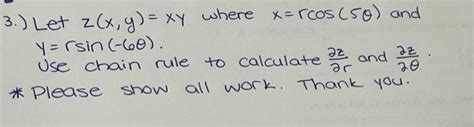 3.) Let z(x,y) = xy where x=rcos(5θ) and
y=rsin(-6θ).
Use chain rule to calculate ∂z/∂r and ∂z/∂θ.
* Please show all work. Thank you.